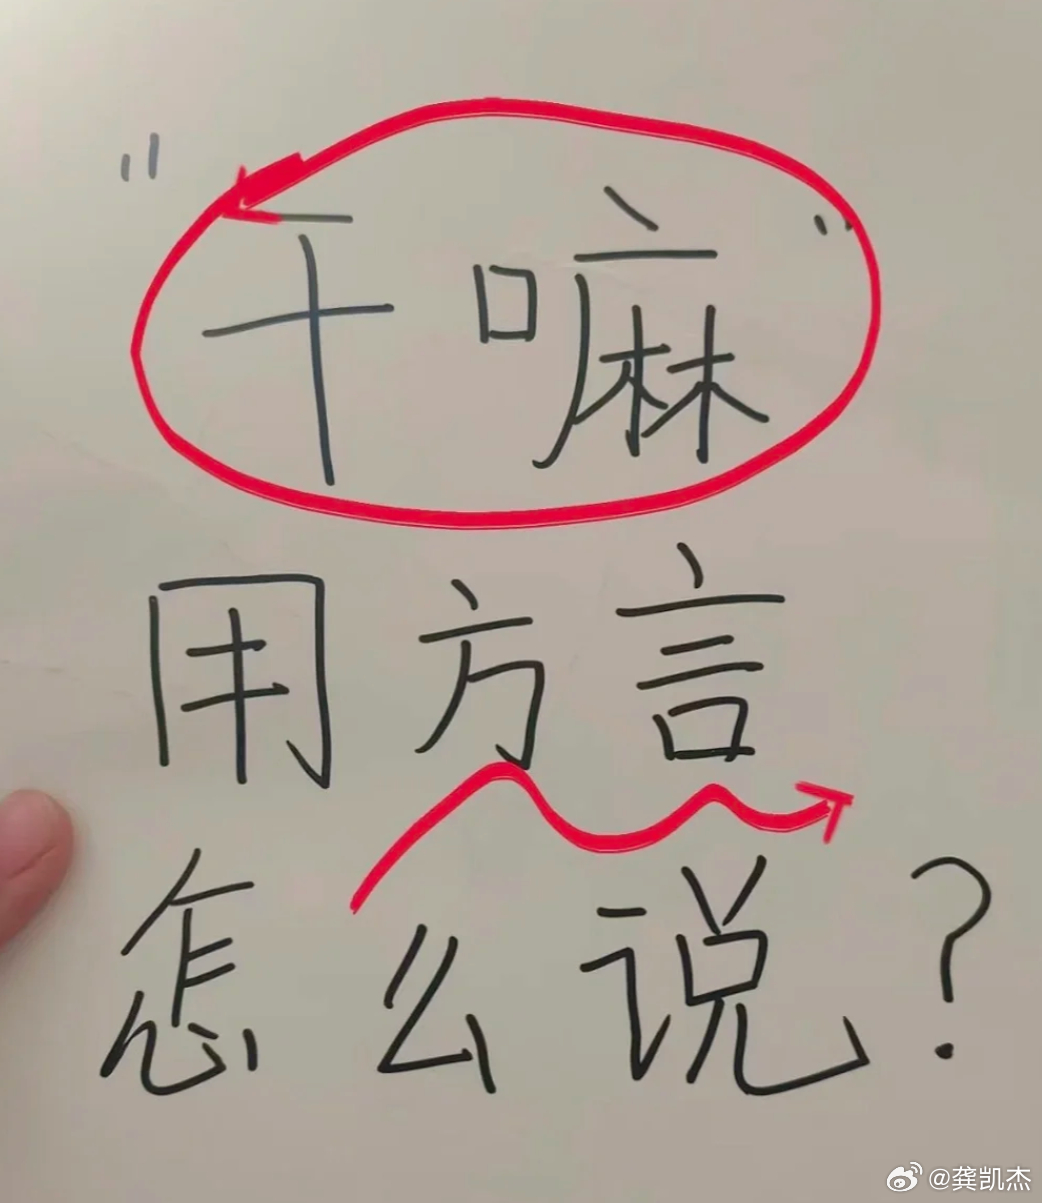 "干嘛"
用方言
怎么说?
@龚凯杰